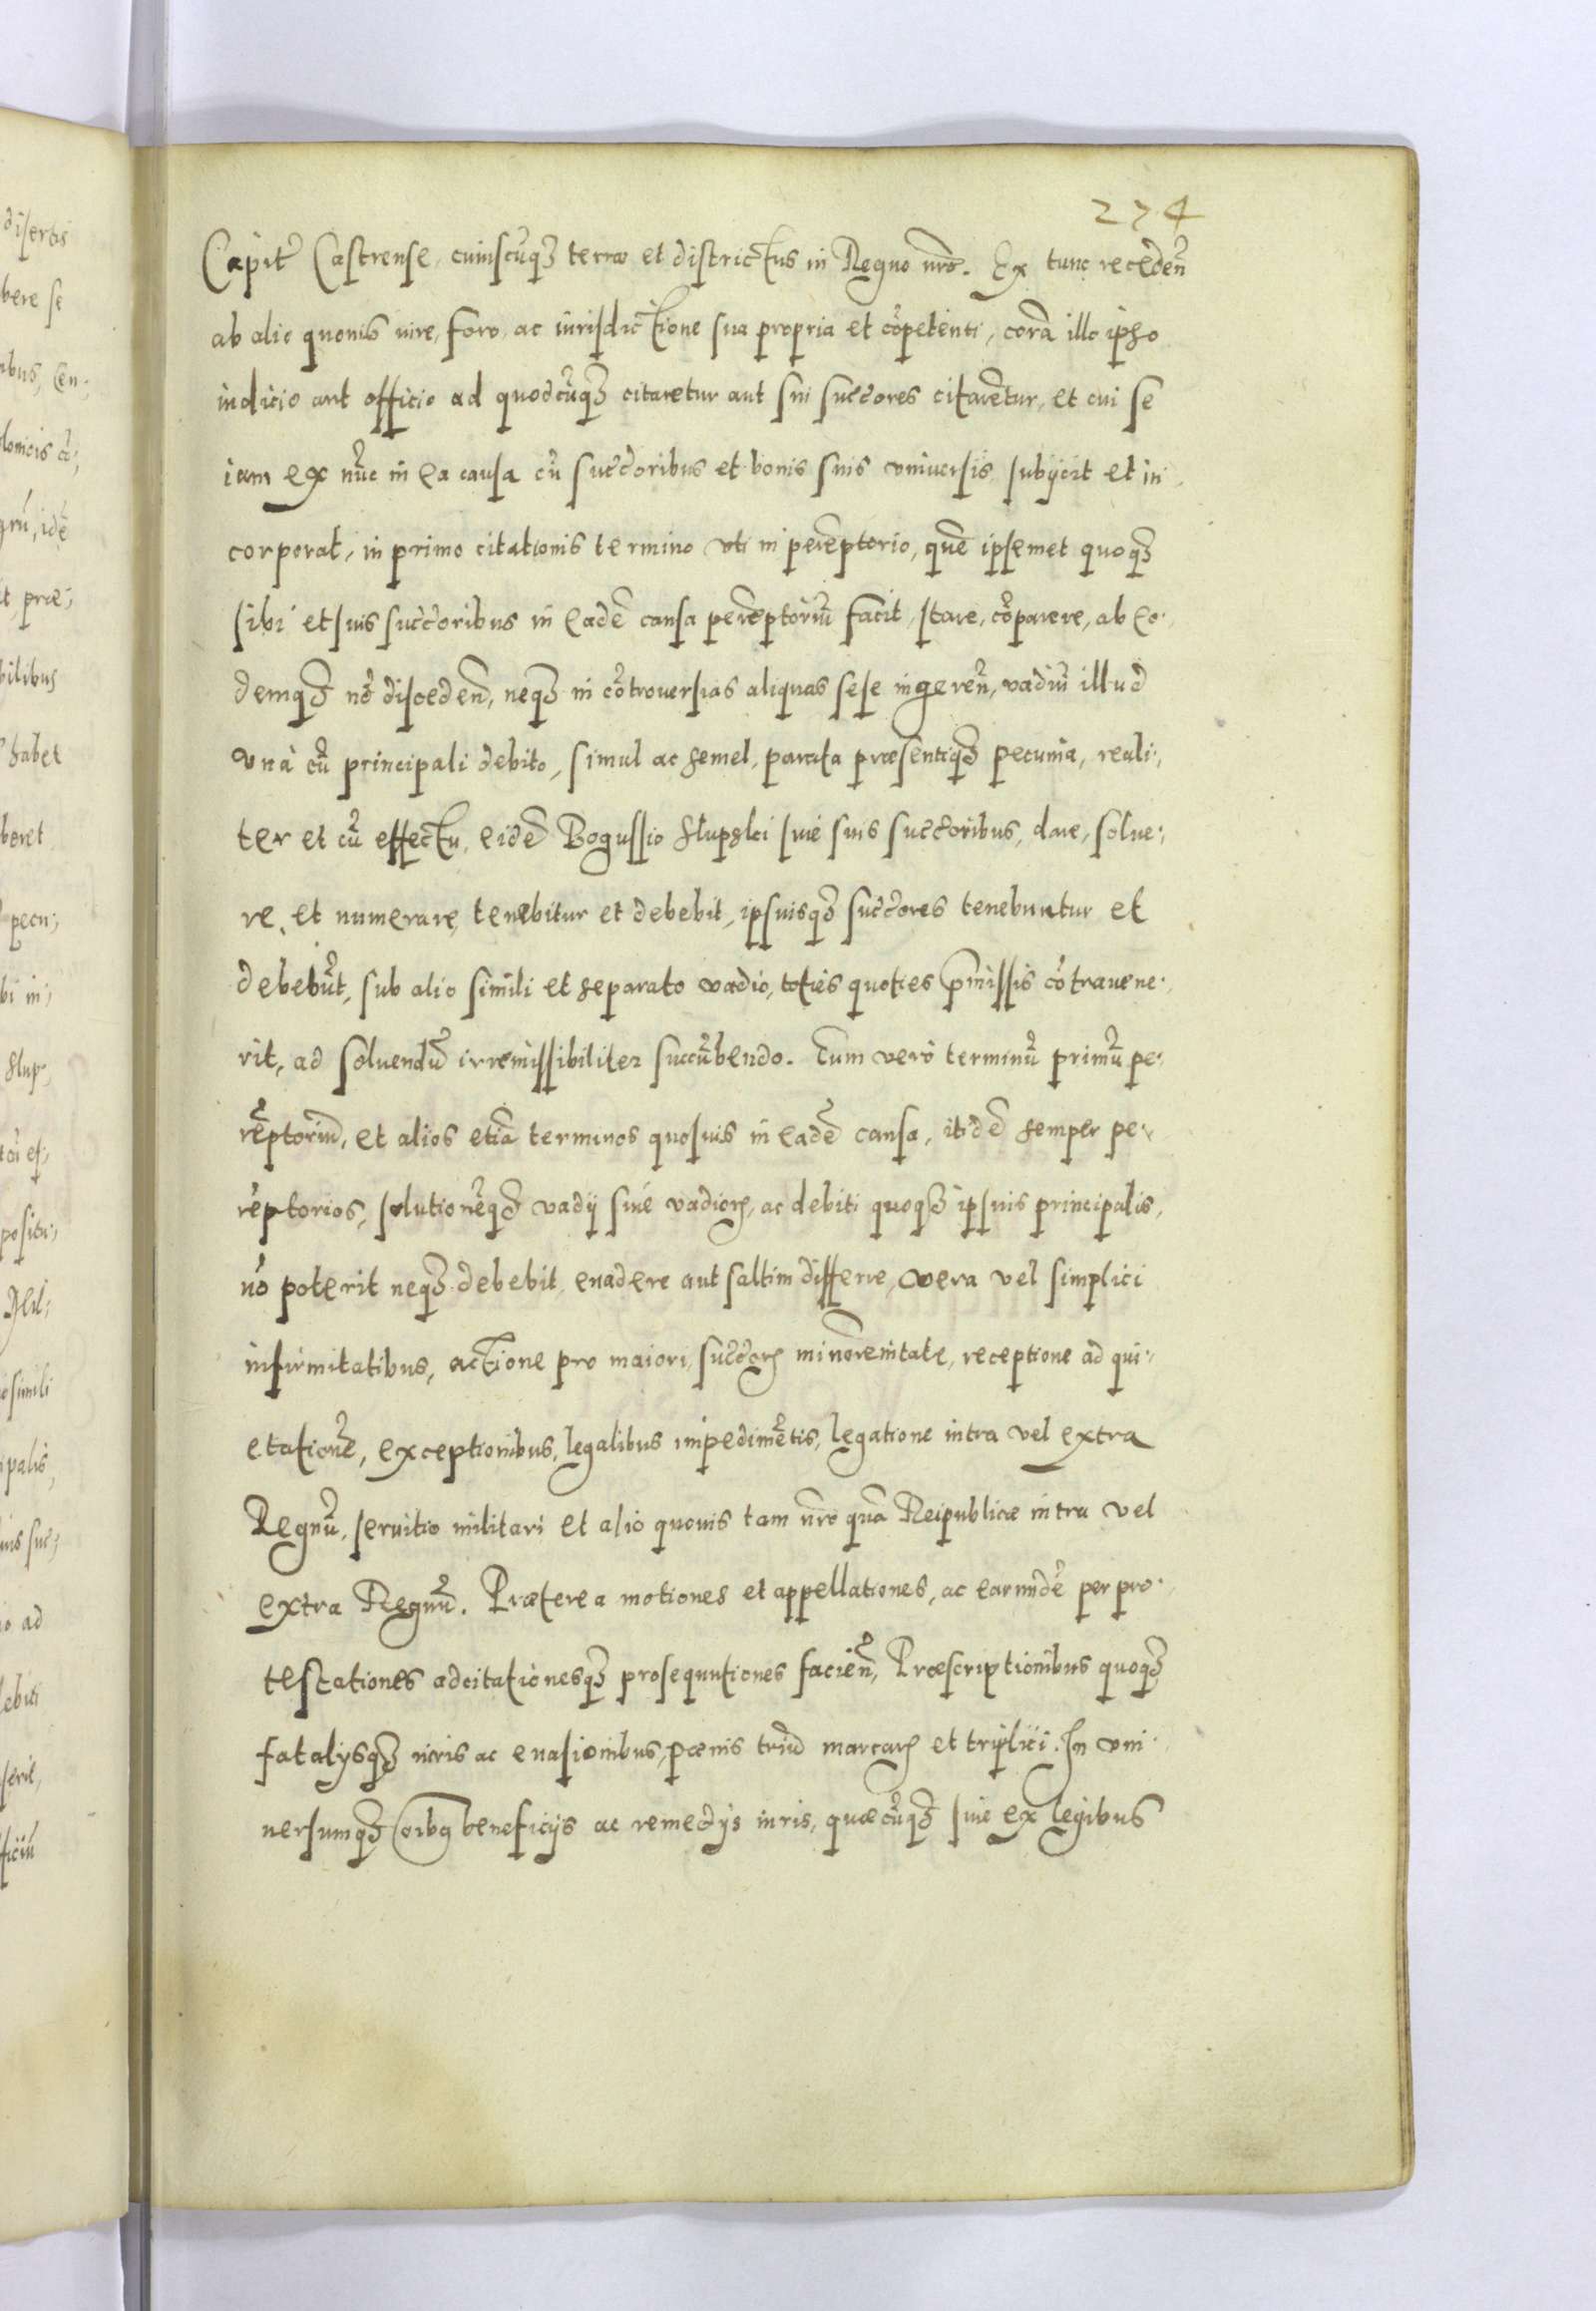 274
Capit' Castrense, cuiuscu̅q₃ terræ et districtus in Regno nro̅. Ex tunc recede̅n
ab alio quouis iure, foro, ac iurisdictione sua propria et co̅petenti, cora̅ illo ipso
iudicio aut officio ad quodcu̅q₃ citaretur aut sui succ̅ores citare̅tur, et cui se
iam ex nu̅c in ea causa cu̅ succ̅oribus et bonis suis vniuersis subijcit et in
corporat, in primo citationis termino vti in pere̅ptorio, que̅ ipsemet quoq₃
sibi et suis succ̅oribus in eade̅ causa pere̅ptoriu̅ facit, stare, co̅parere, ab eo,
demq₃ no̅ disceden̅, neq₃ in co̅trouersias aliquas sese ingeren̅, vadiu̅ illud
vnà cu̅ principali debito, simul ac semel, parata præsentiq₃ pecunia, reali,
ter et cu̅ effectu, eide̅ Bogussio Slupski siue suis succ̅oribus, dare, solue,
re, et numerare, tenebitur et debebit, ipsiusq₃ succ̅ores tenebuntur et
debebu̅t, sub alio simili et separato vadio, toties quoties p̅missis co̅trauene,
rit, ad soluendu̅ irremissibiliter succu̅bendo. Eum vero terminu̅ primu̅ pe,
re̅ptoriu̅, et alios etia̅ terminos quosuis in eade̅ causa, itide̅ semper pe,
re̅ptorios, solutione̅q₃ vadij siue vadioꝝ, ac debiti quoq₃ ipsius principalis,
no̅ poterit neq₃ debebit euadere aut saltim differre, vera vel simplici
infirmitatibus, actione pro maiori, succ̅oꝝ minore̅nitate, receptione ad qui,
etatione̅, exceptionibus, legalibus impedime̅tis, legatione intra vel extra
Regnu̅, seruitio militari et alio quouis tam nro̅ qua̅ Reipublicæ intra vel
extra Regnu̅. Præterea motiones et appellationes, ac earunde̅ per pro,
testationes adcitationesq₃ prosequutiones facien̅, Præscriptionibus quoq₃
fatalijsq₃ iuris ac euasionibus, pœnis triu̅ marcaꝝ et triplici. In vni
uersumq₃ o̅ibq beneficijs ac remedijs iuris, quæcu̅q₃ siue ex legibus